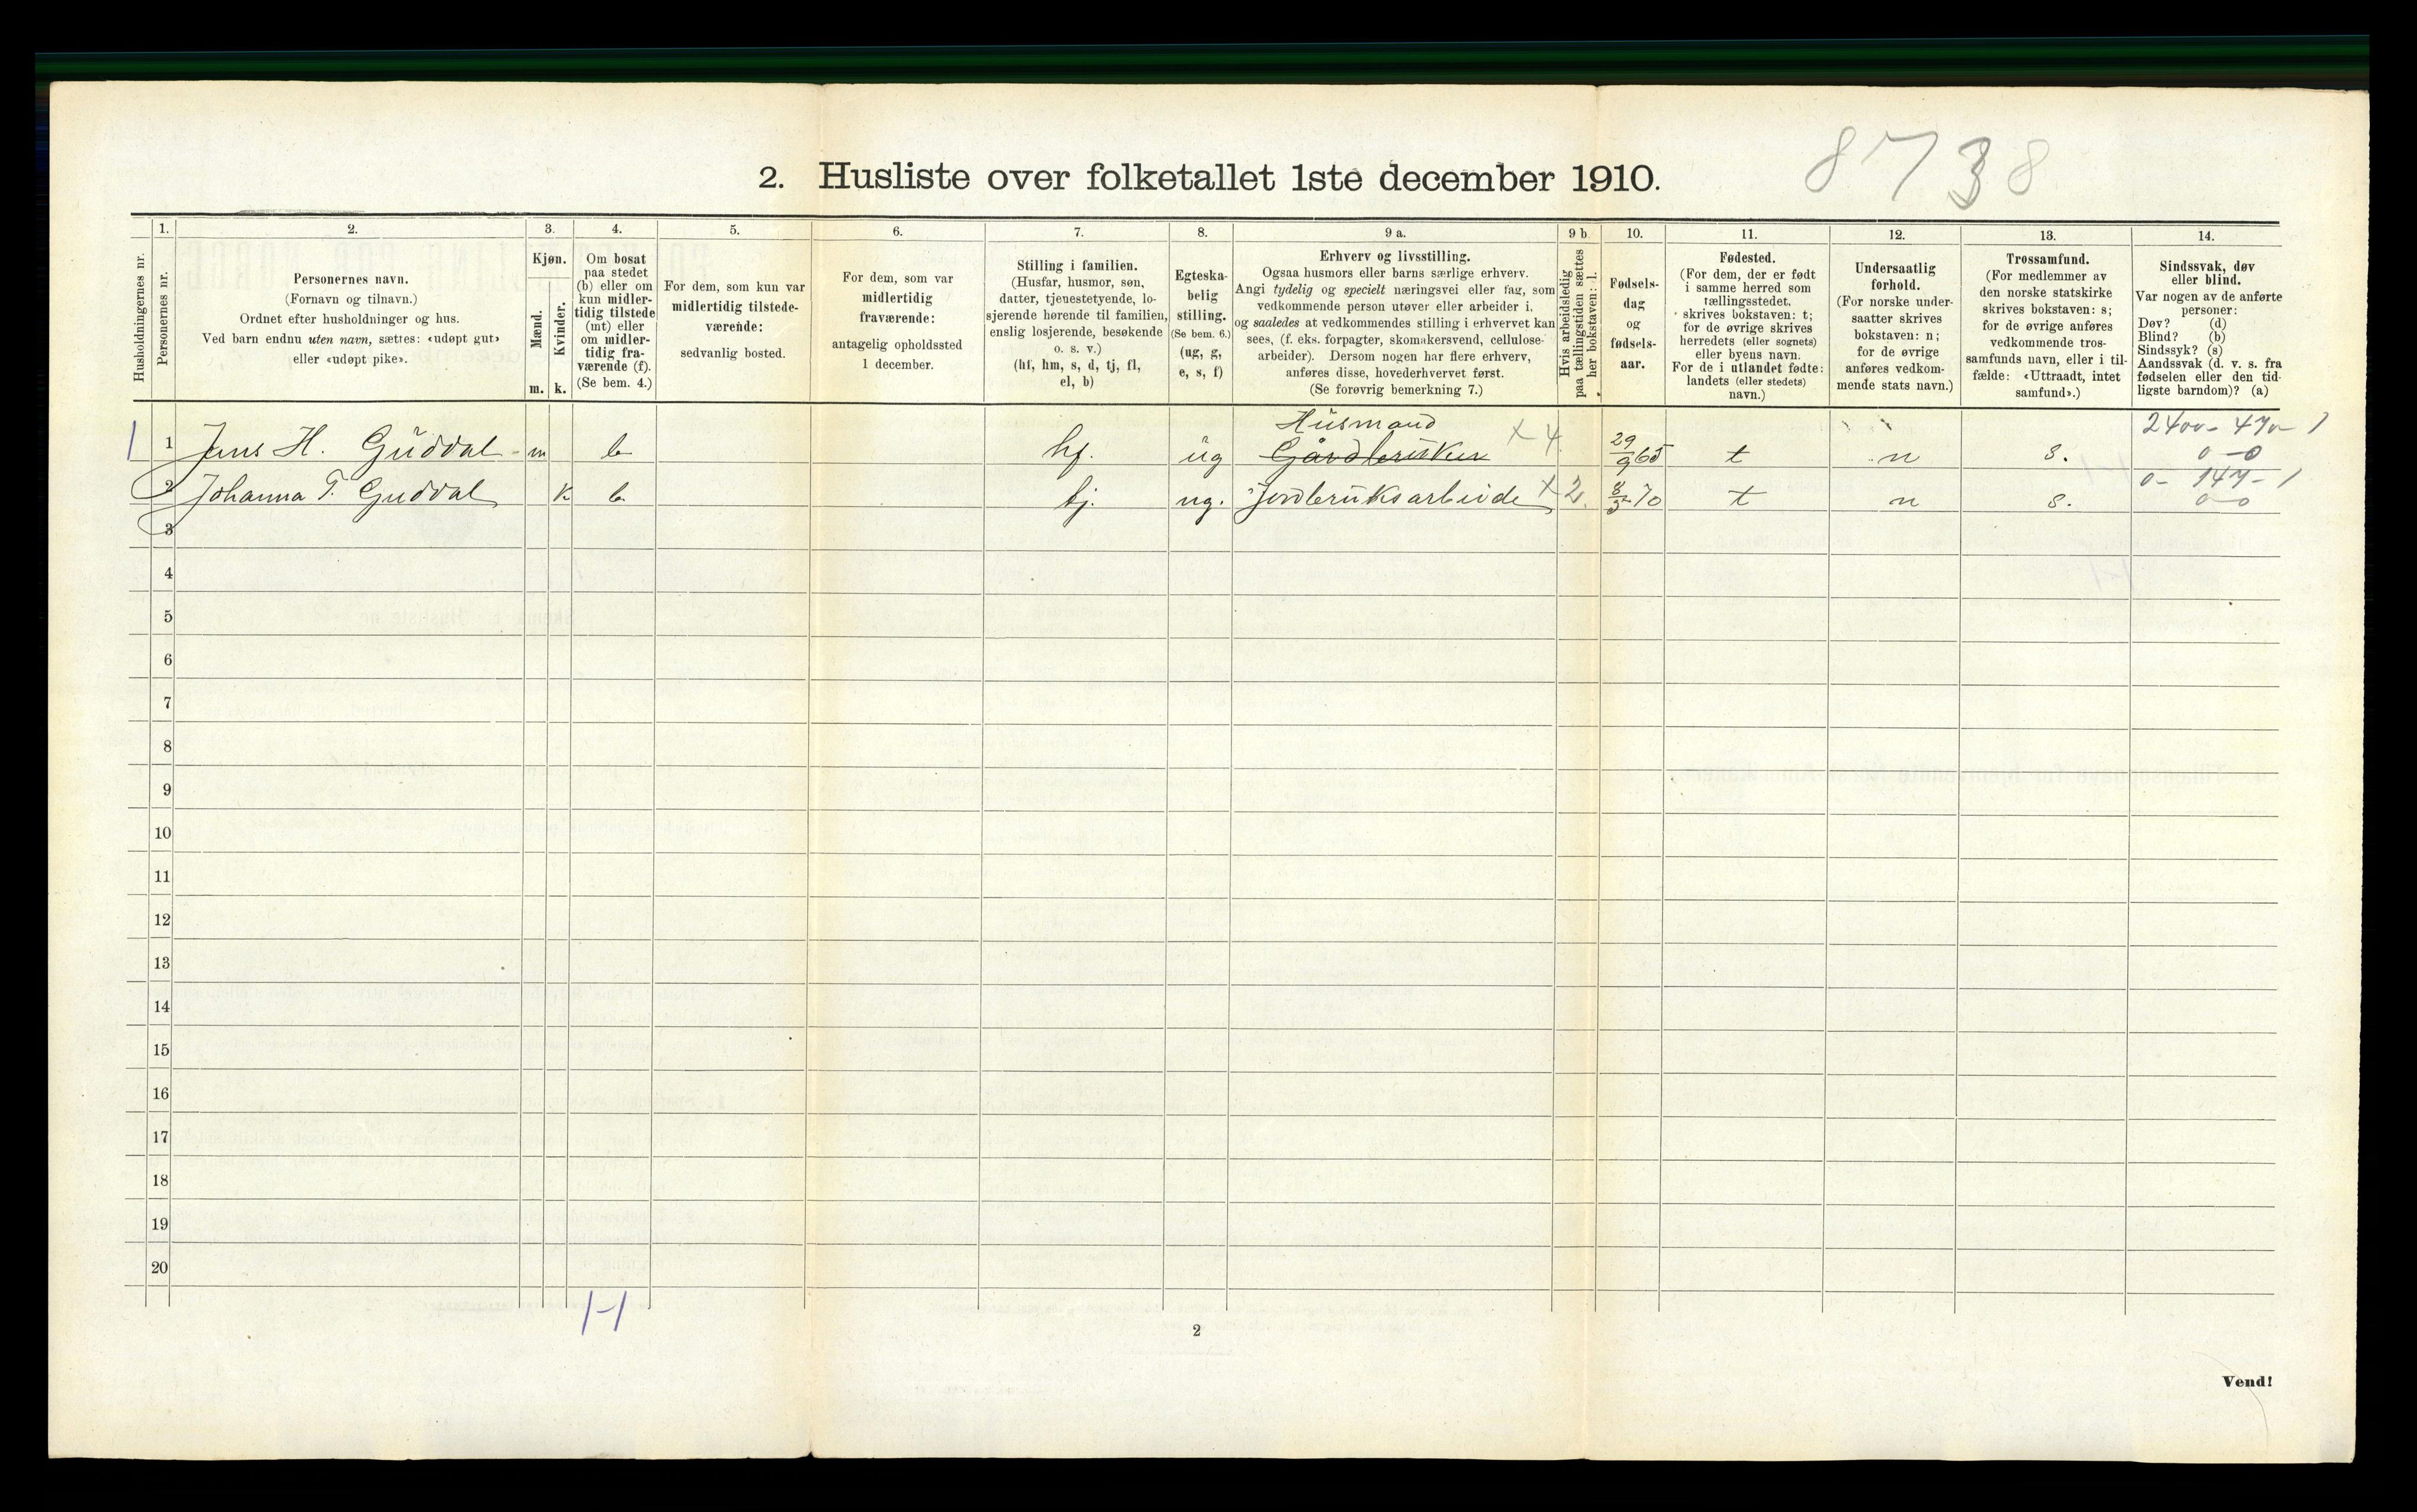 8738
2. Husliste over folketallet 1ste december 1910.
Husholdningernes nr.
1.
Personernes nr.
2.
Personernes navn.
(Fornavn og tilnavn.)
Ordnet efter husholdninger og hus.
Ved barn endnu uten navn, sættes: «udøpt gut»
eller «udøpt pike».
3.
Kjøn.
Mænd.
m.
Kvinder.
k.
4.
Om bosat
paa stedet
(b) eller om
kun midler-
tidig tilstede
(mt) eller
om midler-
tidig fra-
værende (f).
(Se bem. 4.)
5.
For dem, som kun var
midlertidig tilstede-
værende:
sedvanlig bosted.
6.
For dem, som var
midlertidig
fraværende:
antagelig opholdssted
1 december.
7.
Stilling i familien.
(Husfar, husmor, søn,
datter, tjenestetyende, lo-
sjerende hørende til familien,
enslig losjerende, besøkende
o. s. v.)
(hf, hm, s, d, tj, fl,
el, b)
8.
Egteska-
belig
stilling.
(Se bem. 6.)
(ug, g,
e, s, f)
9 a.
Erhverv og livsstilling.
Ogsaa husmors eller barns særlige erhverv.
Angi tydelig og specielt næringsvei eller fag, som
vedkommende person utøver eller arbeider i,
og saaledes at vedkommendes stilling i erhvervet kan
sees, (f. eks. forpagter, skomakersvend, cellulose-
arbeider). Dersom nogen har flere erhverv,
anføres disse, hovederhvervet først.
(Se forøvrig bemerkning 7.)
9 b
Hvis arbeidsledig
paa tællingstiden sættes
her bokstaven: l.
10.
Fødsels-
dag
og
fødsels-
aar.
11.
Fødested.
(For dem, der er født
i samme herred som
tællingsstedet,
skrives bokstaven: t;
for de øvrige skrives
herredets (eller sognets)
eller byens navn.
For de i utlandet fødte:
landets (eller stedets)
navn.)
12.
Undersaatlig
forhold.
(For norske under-
saatter skrives
bokstaven: n;
for de øvrige
anføres vedkom-
mende stats navn.)
13.
Trossamfund.
(For medlemmer av
den norske statskirke
skrives bokstaven: s;
for de øvrige anføres
vedkommende tros-
samfunds navn, eller i til-
fælde: «Uttraadt, intet
samfund».)
14.
Sindssvak, døv
eller blind.
Var nogen av de anførte
personer:
Døv? (d)
Blind? (b)
Sindssyk? (s)
Aandssvak (d. v. s. fra
fødselen eller den tid-
ligste barndom)? (a)
Husmand
1 1 Jens H. Guddal - m b hf. ug Gårdbruker x 4 29/9 65 t n s. 0-0
2 Johanna T. Guddal k b tj. ug. Jordbruksarbeide x 2. 8/3 70 t n s. 0-0
3
4
5
6
7
8
9
10
11
12
13
14
15
16
17
18
19
20
1-1
2
Vend!